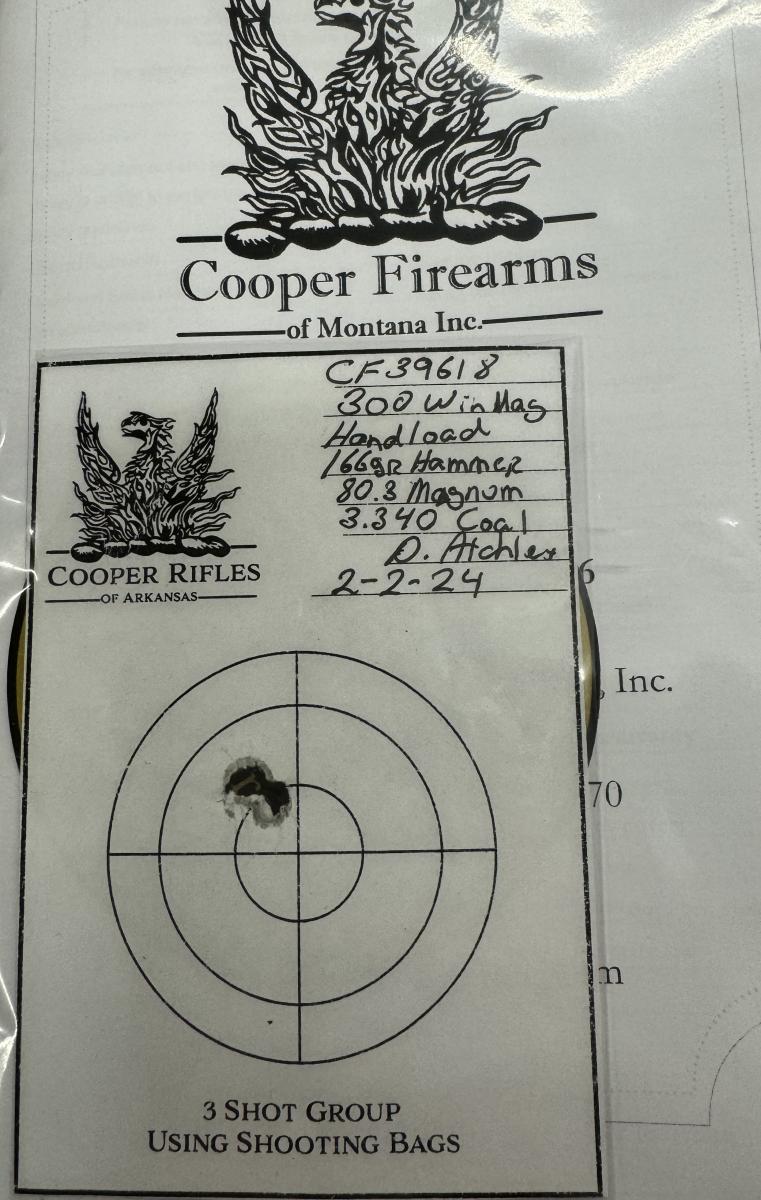 Cooper Firearms
of Montana Inc.
CF39618
300 Win Mag
Handload
166gr Hammer
80.3 Magnum
3.340 Coal
D. Atchley
2-2-24
COOPER RIFLES
OF ARKANSAS
6
, Inc.
70
m
3 SHOT GROUP
USING SHOOTING BAGS